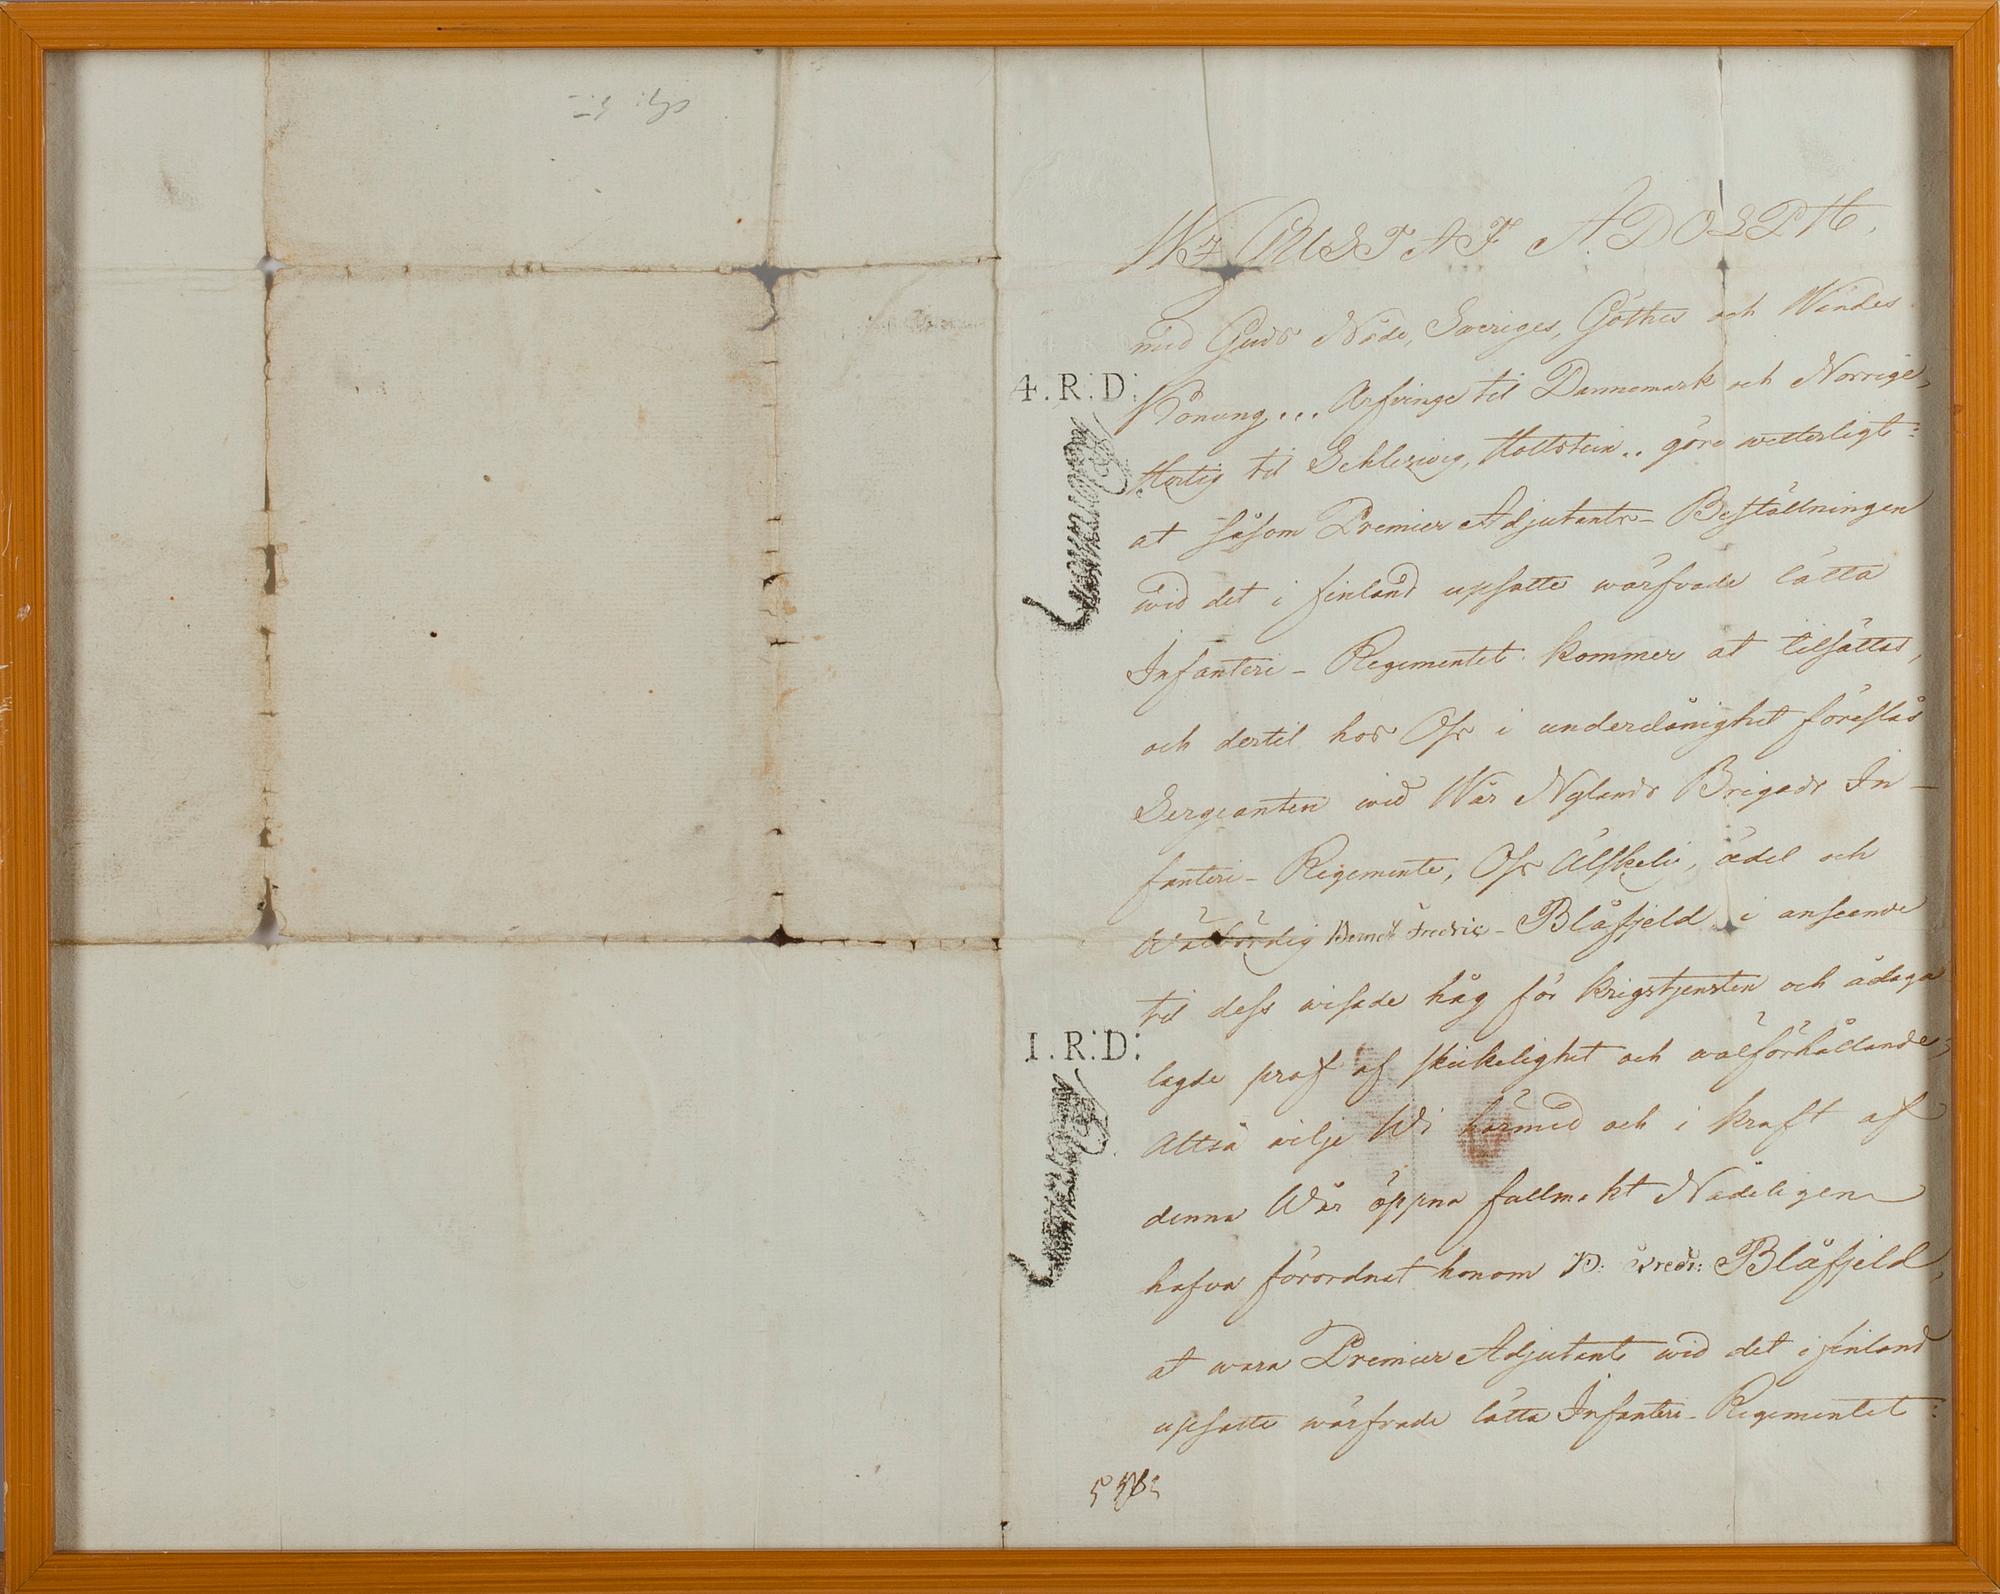 Wi GUSTAF ADOLPH,
med Guds Nåde, Sveriges, Göthes och Wendes
4.R:D:
Konung... Arfvinge til Dannemark och Norrige,
Hertig til Schleswig, Hollstein.. göre witterligt:
at såsom Premier Adjutants-Beställningen
wid det i finland upsatte wärfvade lätta
Infanteri-Regementet kommer at tilsättas,
och dertil hos Oss i underdånighet föreslås
Sergeanten wid Wår Nylands Brigads In-
fanteri-Regemente, Oss Älskelig, ädel och
Wälbördig Bernd Fredric Blåfjeld i anseende
til dess wisade håg för krigstjensten och ådaga
1.R:D:
lagde prof af skickelighet och wälförhållande;
Altså wilje Wi härmed och i kraft af
denna Wår öppna fullmakt Nådeligen
hafva förordnat honom B: Fredr: Blåfjeld,
at wara Premier Adjutant wid det i finland
upsatte wärfvade lätta Infanteri-Regementet: